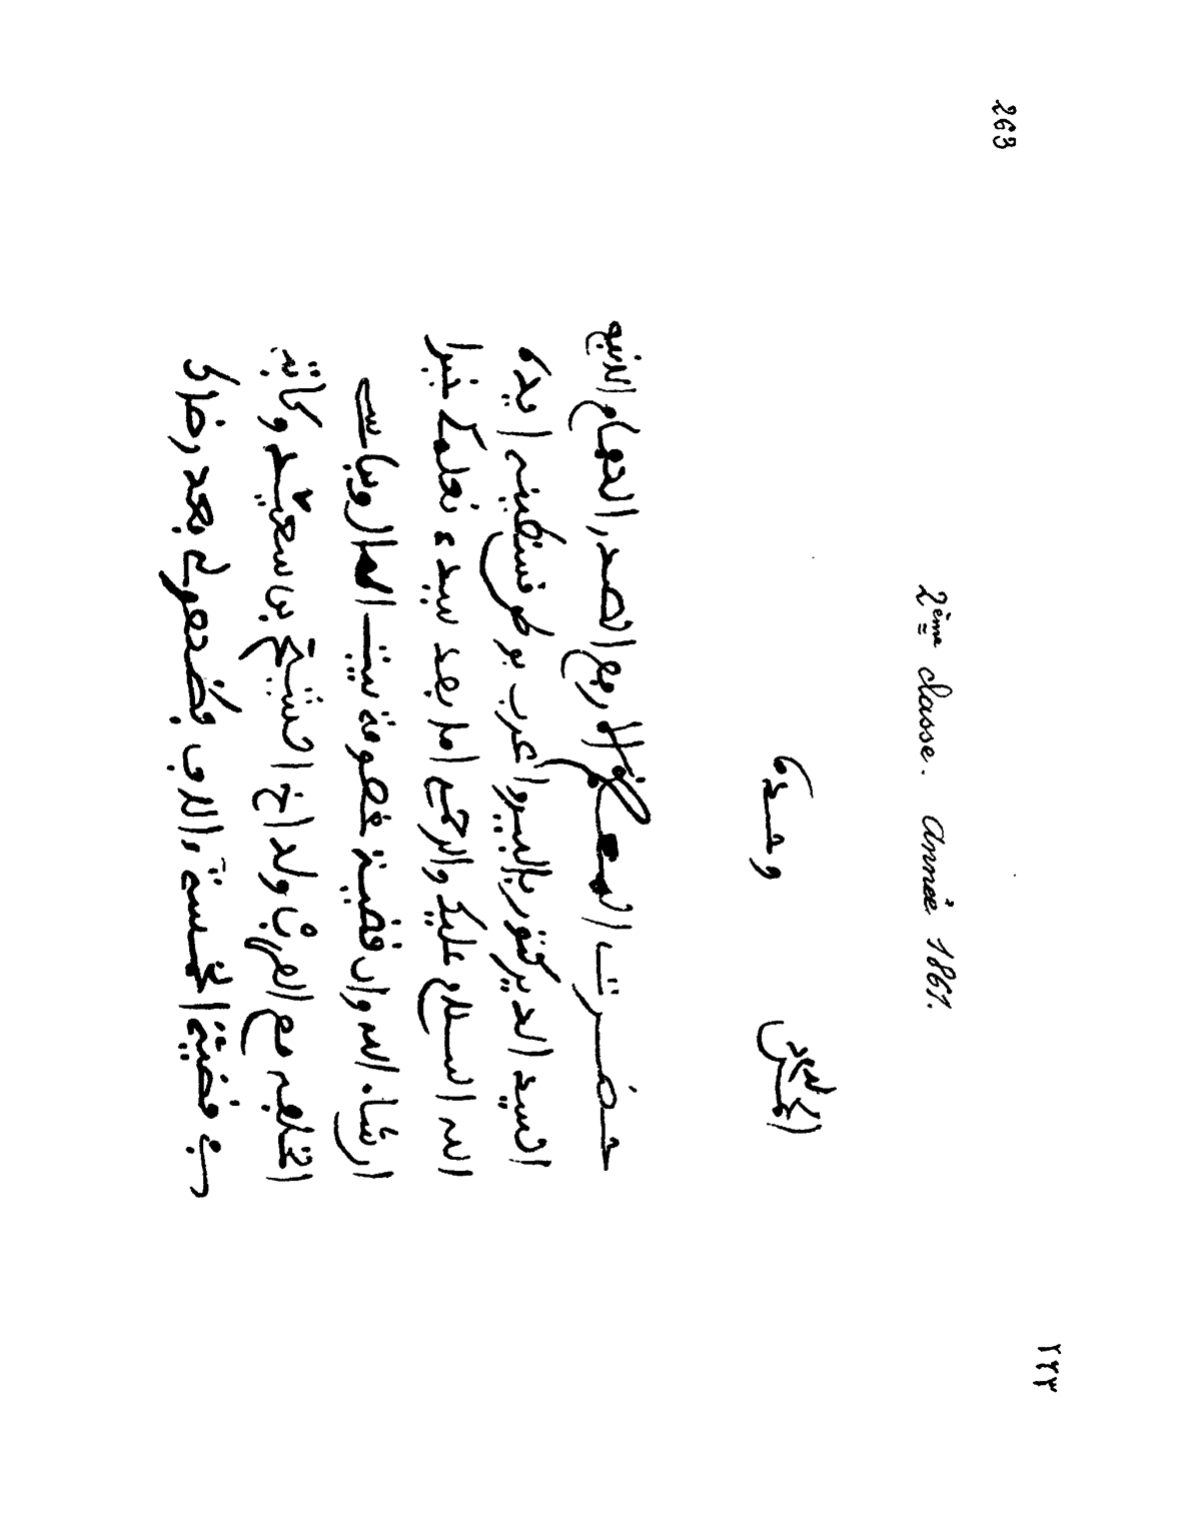 263
٢٢٣
2ème classe. Année 1861.
الحمد لله وحده
حضرت المعظم الارفع الصدر الهمام الانبه
السيد الديركتور بالبيرو اعرب بوطن قسنطينة ايده
الله السلام عليك والرحمة اما بعد سيدي نعلمك خيرا
ان شاء الله وان قضية خصومة بيت
مع العربي ولد اخ الشيخ بن سعيد وكاتبه
قضية الخمسة بعد رضاك